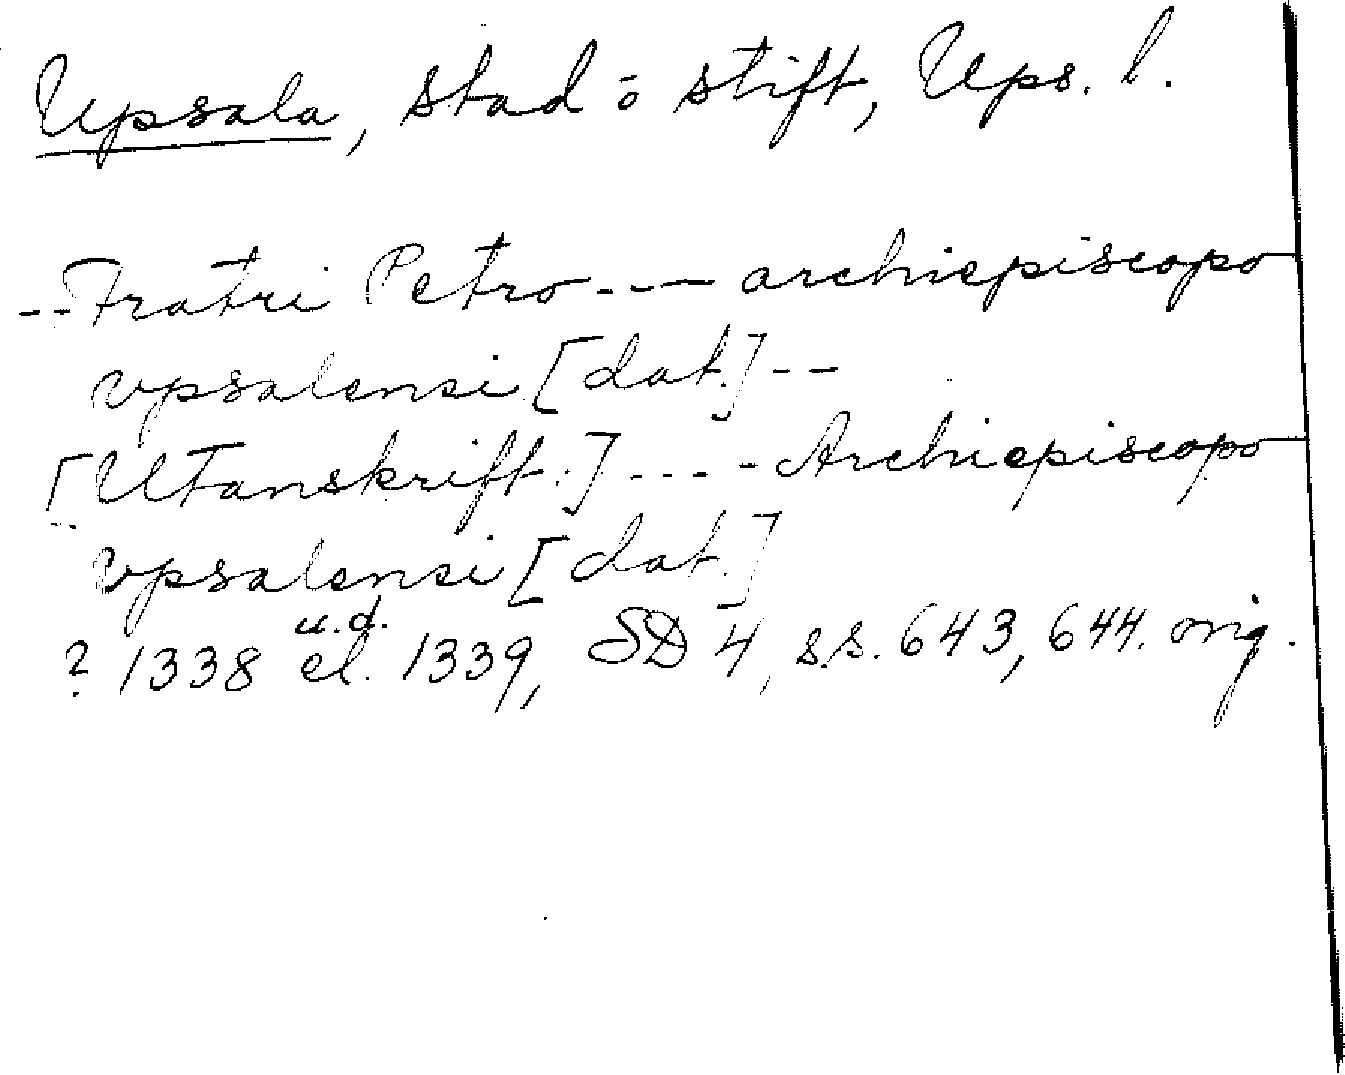 Upsala, stad o stift, Ups. l.
-- Fratri Petro ---- archiepiscopo
vpsalensi [dat.] --
[Utanskrift:] ---- Archiepiscopo
vpsalensi [dat.]
u.d.
? 1338 el. 1339, SD 4, s.s. 643, 644. orig.